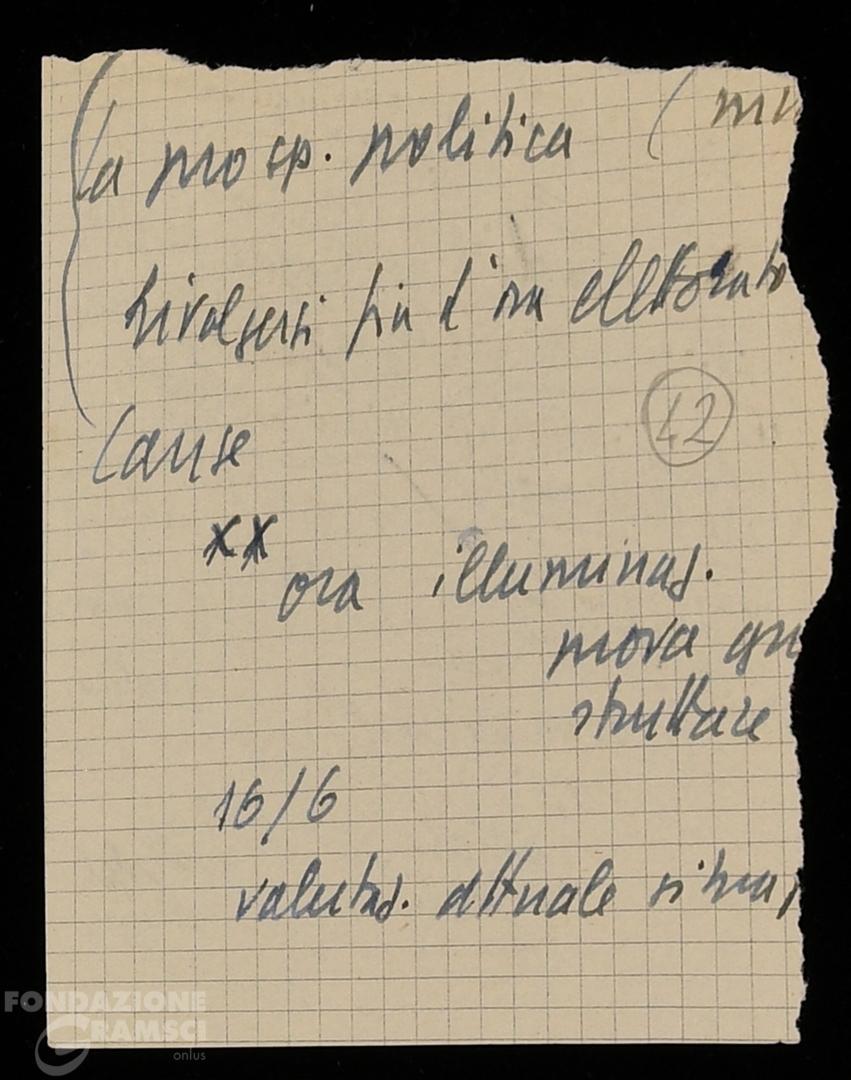 La prosp. politica (
Rivolgersi fin d'ora elettorato
42
Cause
xx
ora illuminaz.
prova
strutture
16/6
valutaz. attuale situaz
FONDAZIONE
GRAMSCI
onlus